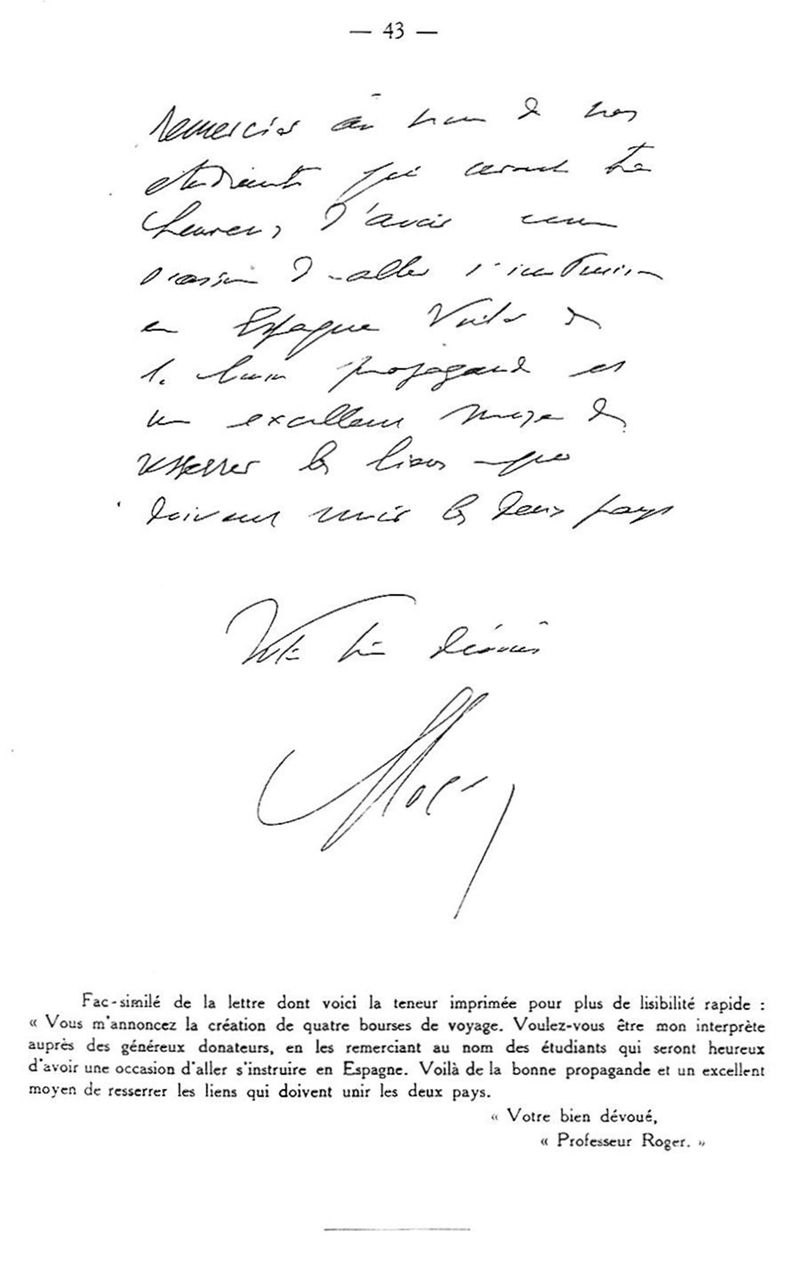 — 43 —
remercier au nom de nos
étudiants qui seront très
heureux d'avoir une
occasion d'aller s'instruire
en Espagne Voilà de
la bonne propagande et
un excellent moyen de
resserrer les liens qui
doivent unir les deux pays
Votre bien dévoué
Roger
Fac-similé de la lettre dont voici la teneur imprimée pour plus de lisibilité rapide :
« Vous m'annoncez la création de quatre bourses de voyage. Voulez-vous être mon interprète
auprès des généreux donateurs, en les remerciant au nom des étudiants qui seront heureux
d'avoir une occasion d'aller s'instruire en Espagne. Voilà de la bonne propagande et un excellent
moyen de resserrer les liens qui doivent unir les deux pays.
« Votre bien dévoué,
« Professeur Roger. »